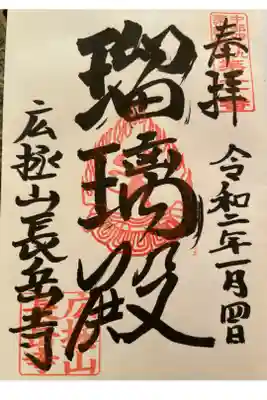 奉拝
令和二年一月四日
瑠璃殿
広拯山長岳寺